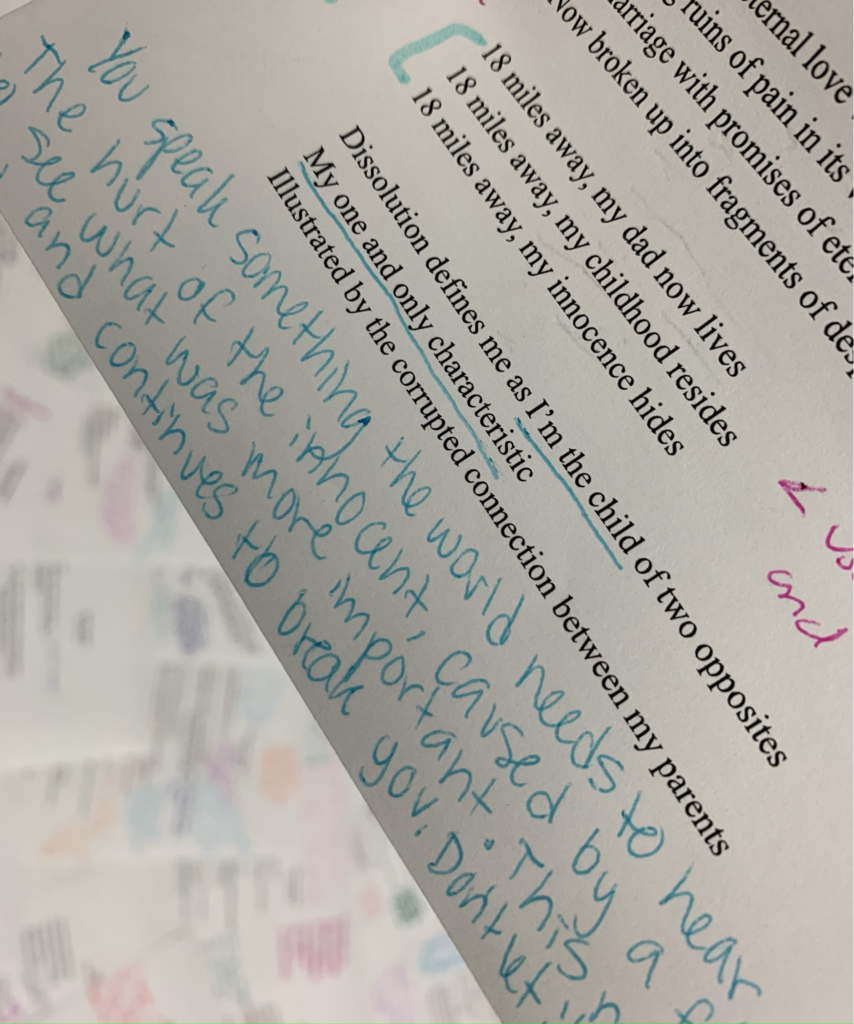 love
ruins of pain in its
with promises of
Now broken up into fragments of
18 miles away, my dad now lives
18 miles away, my childhood resides
18 miles away, my innocence hides
Dissolution defines me as I'm the child of two opposites
My one and only characteristic
Illustrated by the corrupted connection between my parents
and
You speak something the world needs to hear
The hurt of the innocent, caused by a
see what was more important. This
and continues to break you. Don't let